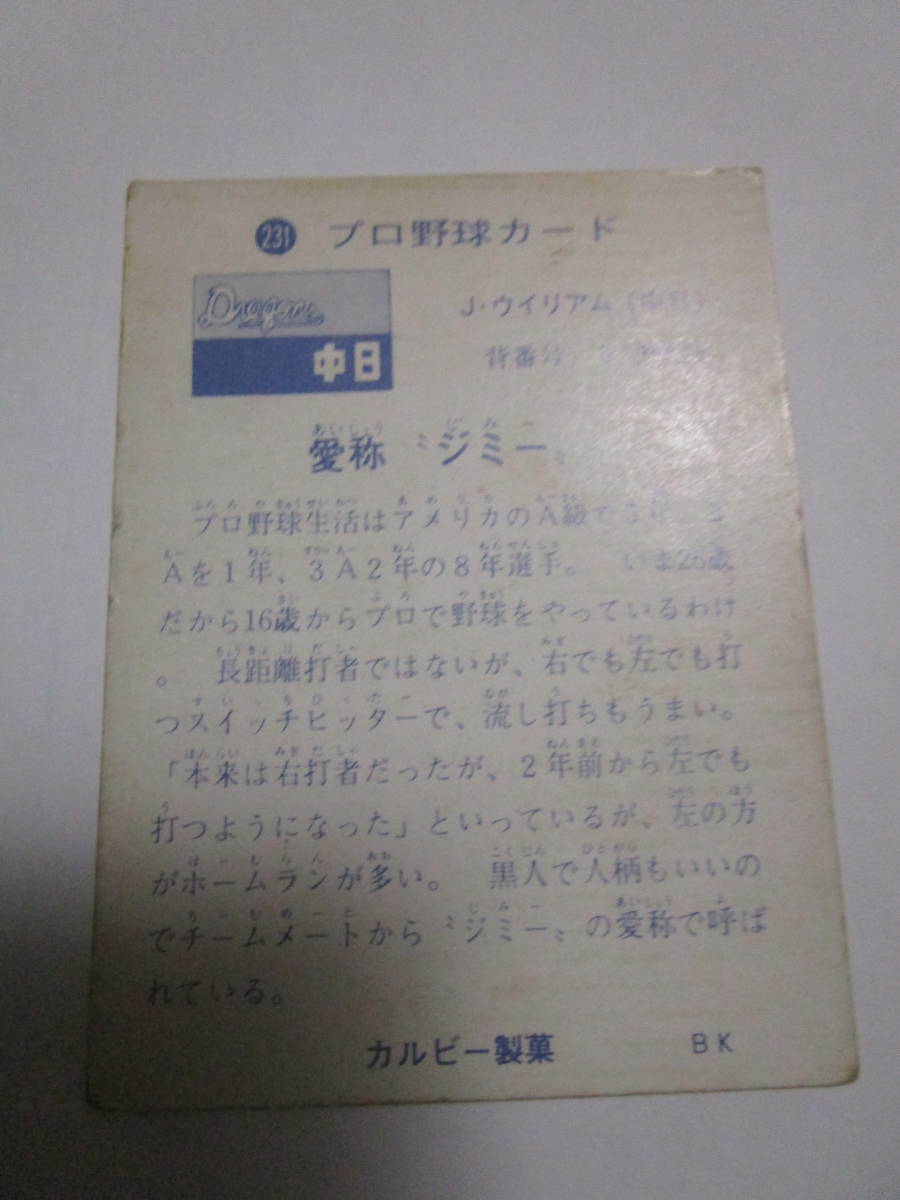 231 プロ野球カード
Dragons
中日
J・ウイリアム（中日）
背番号
愛称〝ジミー〟
プロ野球生活はアメリカのA級で5年、2
Aを1年、3A2年の8年選手。 いま26歳
だから16歳からプロで野球をやっているわけ
。 長距離打者ではないが、右でも左でも打
つスイッチヒッターで、流し打ちもうまい。
「本来は右打者だったが、2年前から左でも
打つようになった」といっているが、左の方
がホームランが多い。 黒人で人柄もいいの
でチームメートから〝ジミー〟の愛称で呼ば
れている。
カルビー製菓 BK